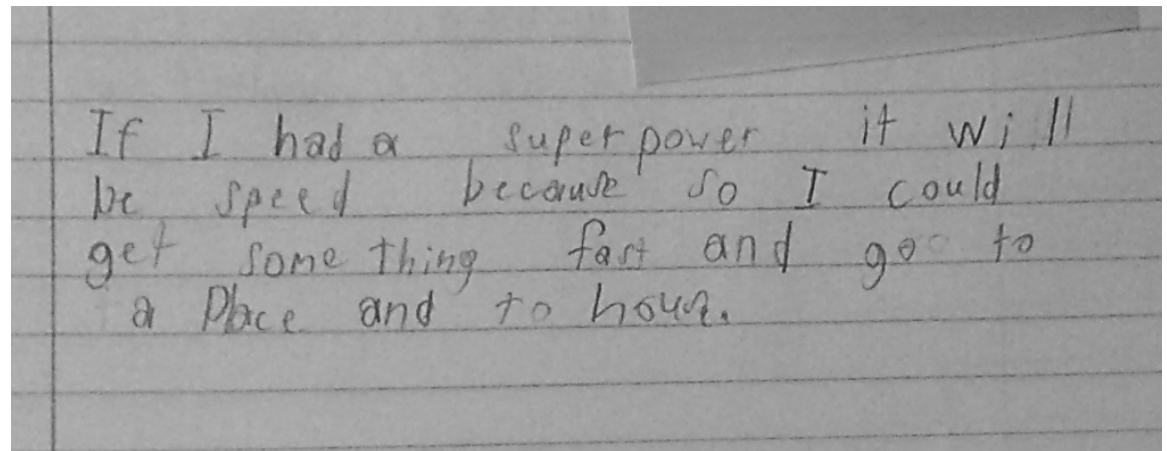 If I had a super power it will
be speed because so I could
get some thing fast and go to
a Place and to house.